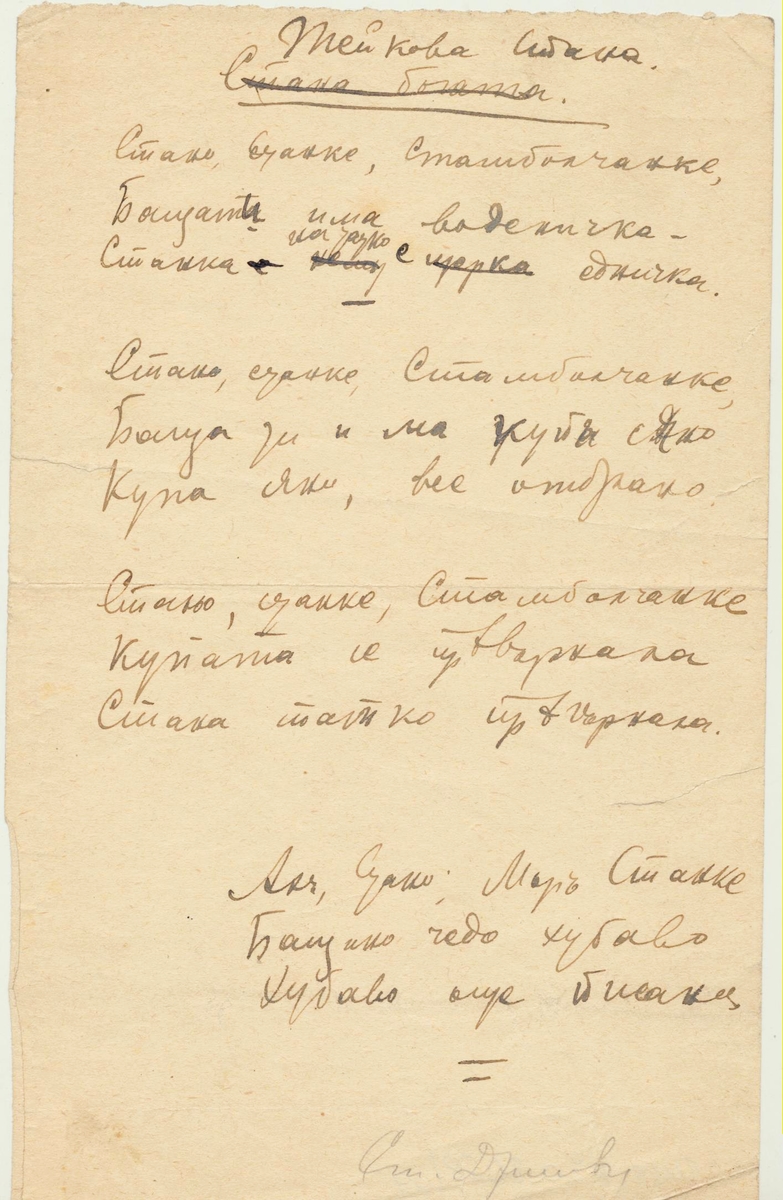 Тейкова Стана.
Стана богата.
Стано, Станке, Стамболчанке,
Баща ти има воденичка –
Станка е на тайко е щерка едничка.
Стано, Станке, Стамболчанке,
Баща ти има купа сѣно
Купа сѣно, все отбрано.
Стано, Станке, Стамболчанке
Купата се прѣвърнала
Стана татко прѣгърнала.
Стано, Мъръ Станке
Бащино чедо хубаво
Хубаво още писано
Ст.